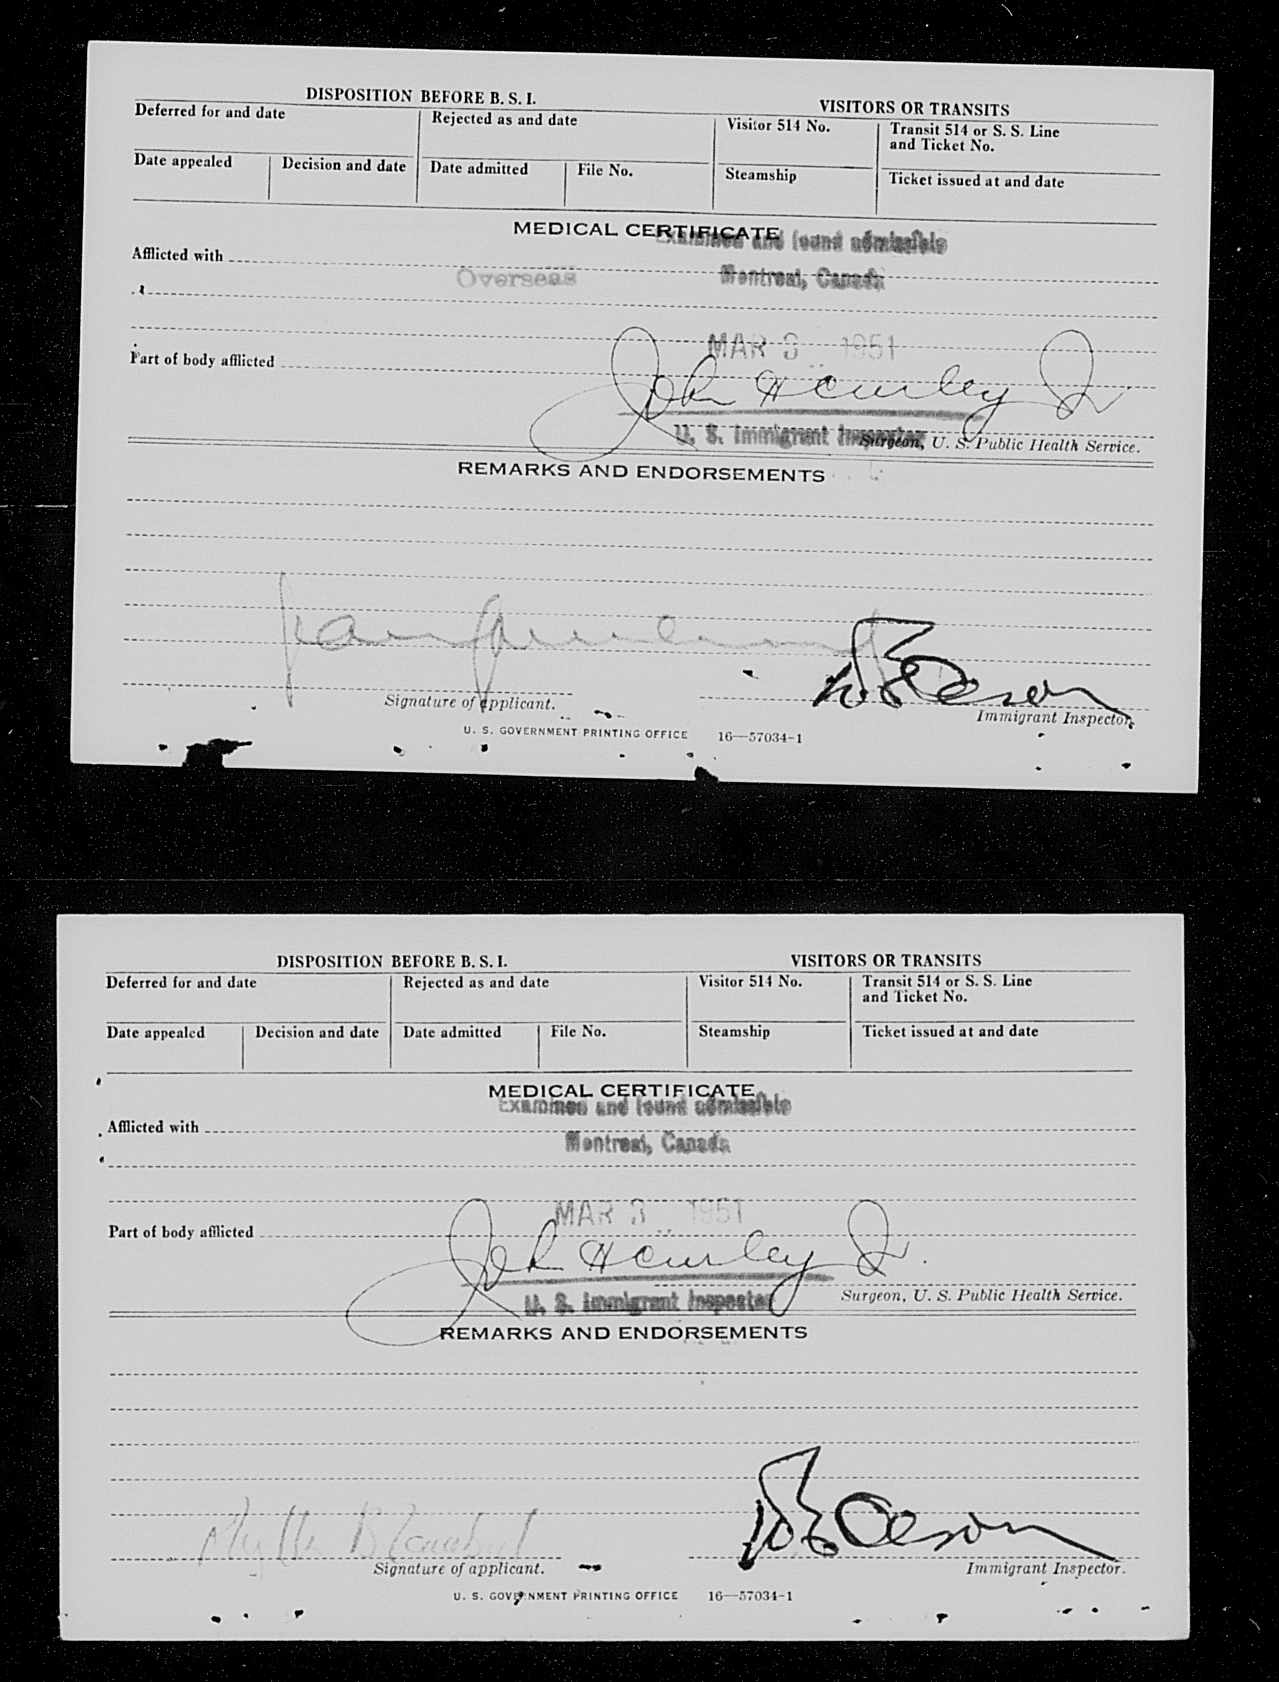 DISPOSITION BEFORE B. S. I.
VISITORS OR TRANSITS
Deferred for and date
Rejected as and date
Visitor 514 No.
Transit 514 or S. S. Line
and Ticket No.
Date appealed
Decision and date
Date admitted
File No.
Steamship
Ticket issued at and date
MEDICAL CERTIFICATE
Examined and found admissible
Afflicted with
Overseas
Montreal, Canada
MAR 3 1951
Part of body afflicted
John Hawley Jr
U. S. Immigrant Inspector
Surgeon, U. S. Public Health Service.
REMARKS AND ENDORSEMENTS
Oleson
Signature of applicant.
Immigrant Inspector.
U. S. GOVERNMENT PRINTING OFFICE 16—57034-1
DISPOSITION BEFORE B. S. I.
VISITORS OR TRANSITS
Deferred for and date
Rejected as and date
Visitor 514 No.
Transit 514 or S. S. Line
and Ticket No.
Date appealed
Decision and date
Date admitted
File No.
Steamship
Ticket issued at and date
MEDICAL CERTIFICATE
Examined and found admissible
Afflicted with
Montreal, Canada
MAR 3 1951
Part of body afflicted
John Hawley Jr
U. S. Immigrant Inspector
Surgeon, U. S. Public Health Service.
REMARKS AND ENDORSEMENTS
Oleson
Signature of applicant.
Immigrant Inspector.
U. S. GOVERNMENT PRINTING OFFICE 16—57034-1